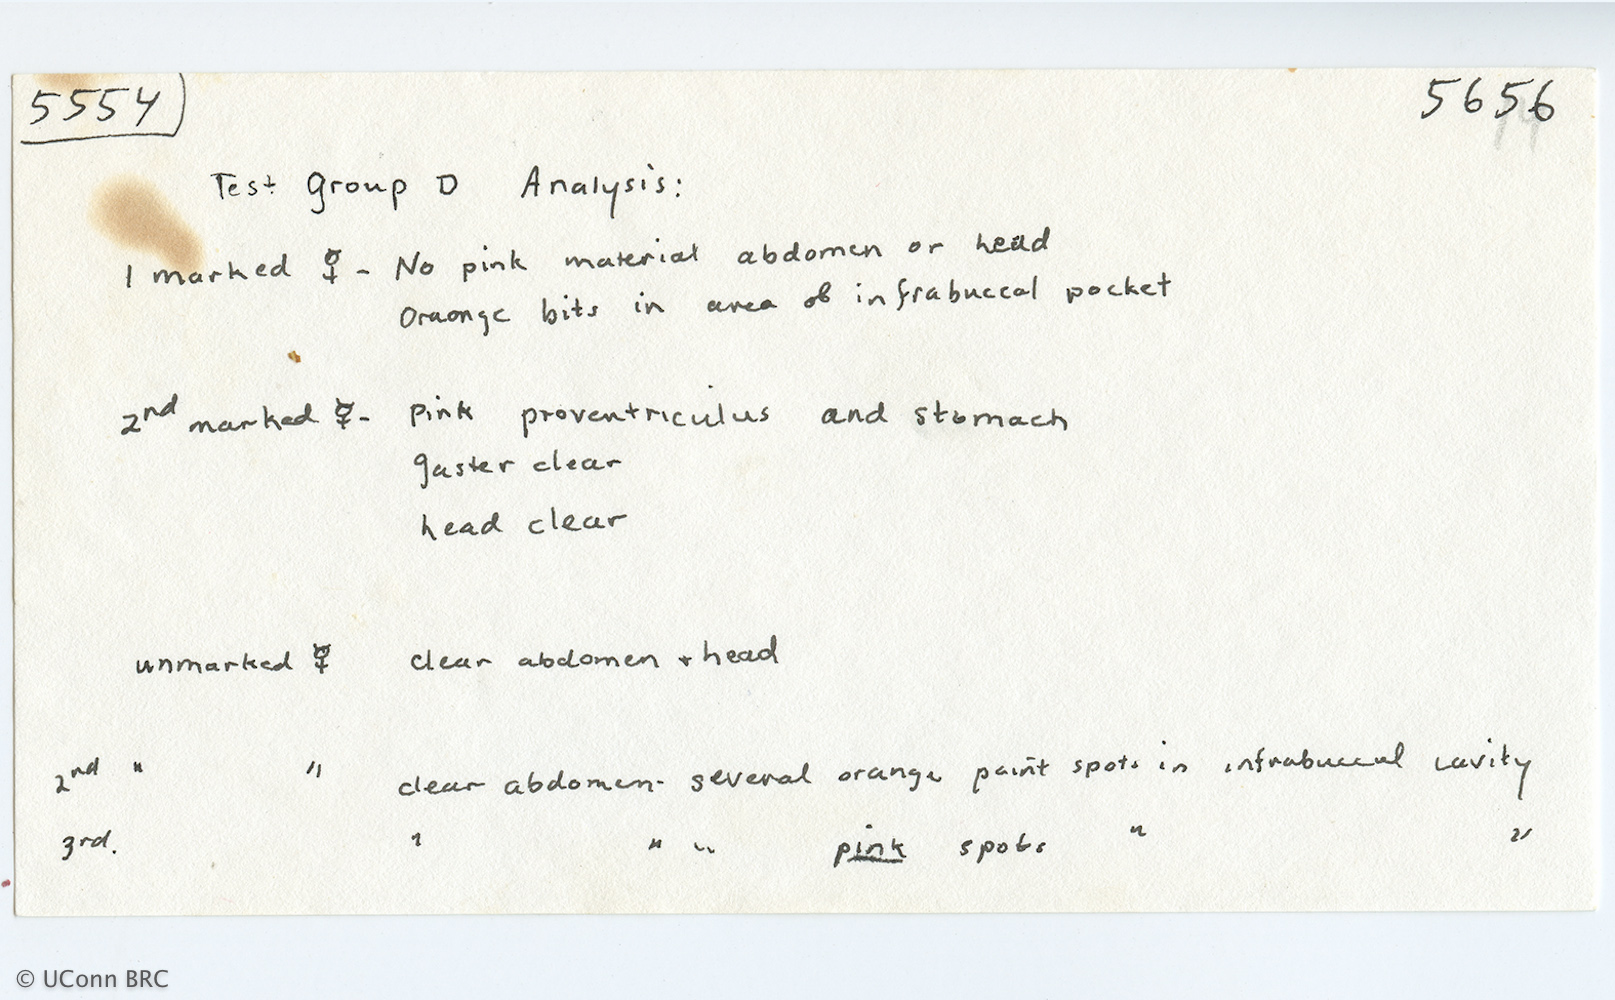 5554 5656
Test Group D Analysis:
1 marked ☿ - No pink material abdomen or head
Oraonge bits in area of infrabuccal pocket
2nd marked ☿ - pink proventriculus and stomach
gaster clear
head clear
unmarked ☿ clear abdomen + head
2nd " " clear abdomen - several orange paint spots in infrabuccal cavity
3rd. " " " pink spots " "
© UConn BRC